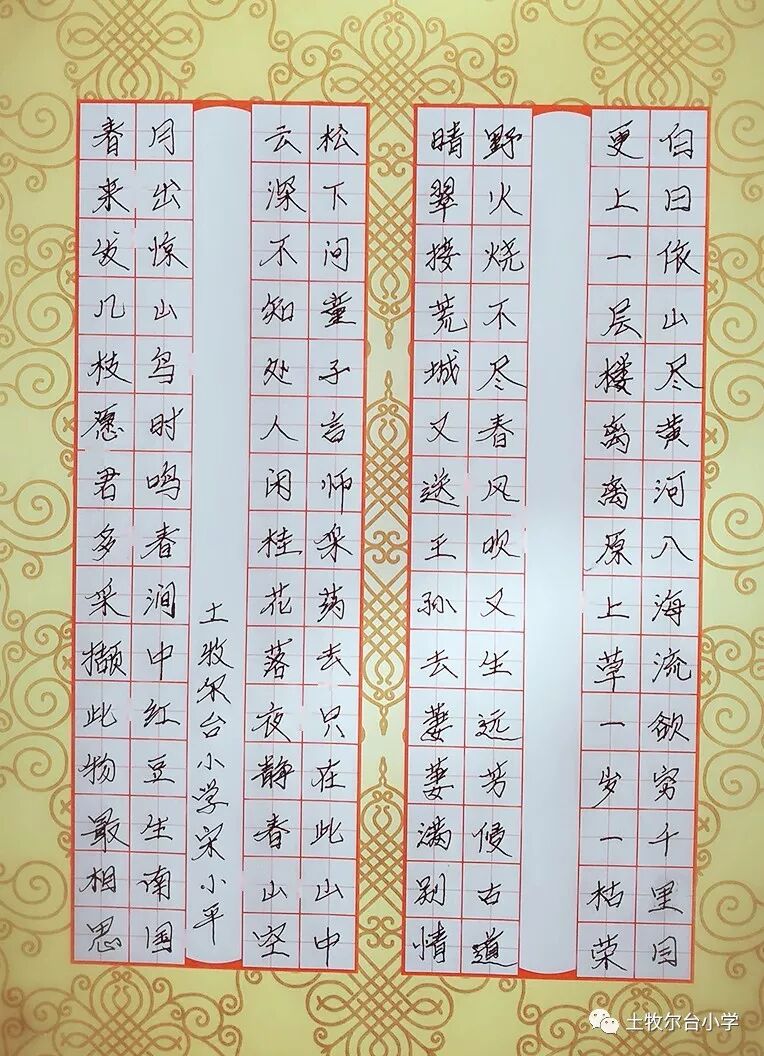 白日依山尽黄河入海流欲穷千里目
更上一层楼离离原上草一岁一枯荣
野火烧不尽春风吹又生远芳侵古道
晴翠接荒城又送王孙去萋萋满别情
松下问童子言师采药去只在此山中
云深不知处人闲桂花落夜静春山空
土牧尔台小学宋小平
月出惊山鸟时鸣春涧中红豆生南国
春来发几枝愿君多采撷此物最相思
土牧尔台小学